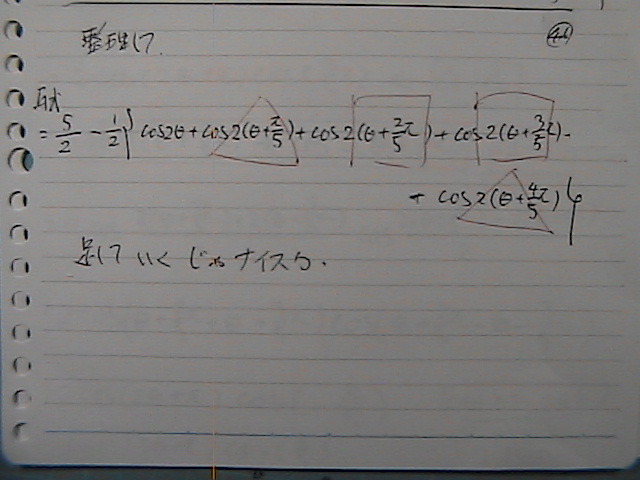 整理して
与式
= 5/2 - 1/2 { cos2θ + cos2(θ+π/5) + cos2(θ+2/5π) + cos2(θ+3/5π)
+ cos2(θ+4/5π) }
足して いく じゃナイスカ.